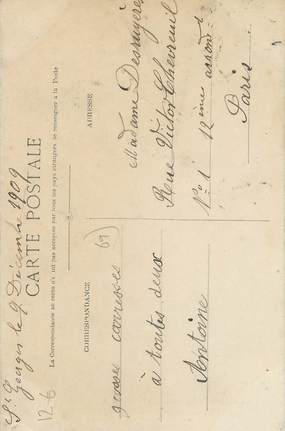 St Georges le 9 Décembre 1909
CARTE POSTALE
La Correspondance au recto n'est pas acceptée par tous les pays étrangers, se renseigner à la Poste
CORRESPONDANCE
ADRESSE
(69)
grosses carresses
à toutes deux
Antoine
Madame Desruyères
Rue Victor Chevreuil
No 1 12ème arrondt
Paris
12-6